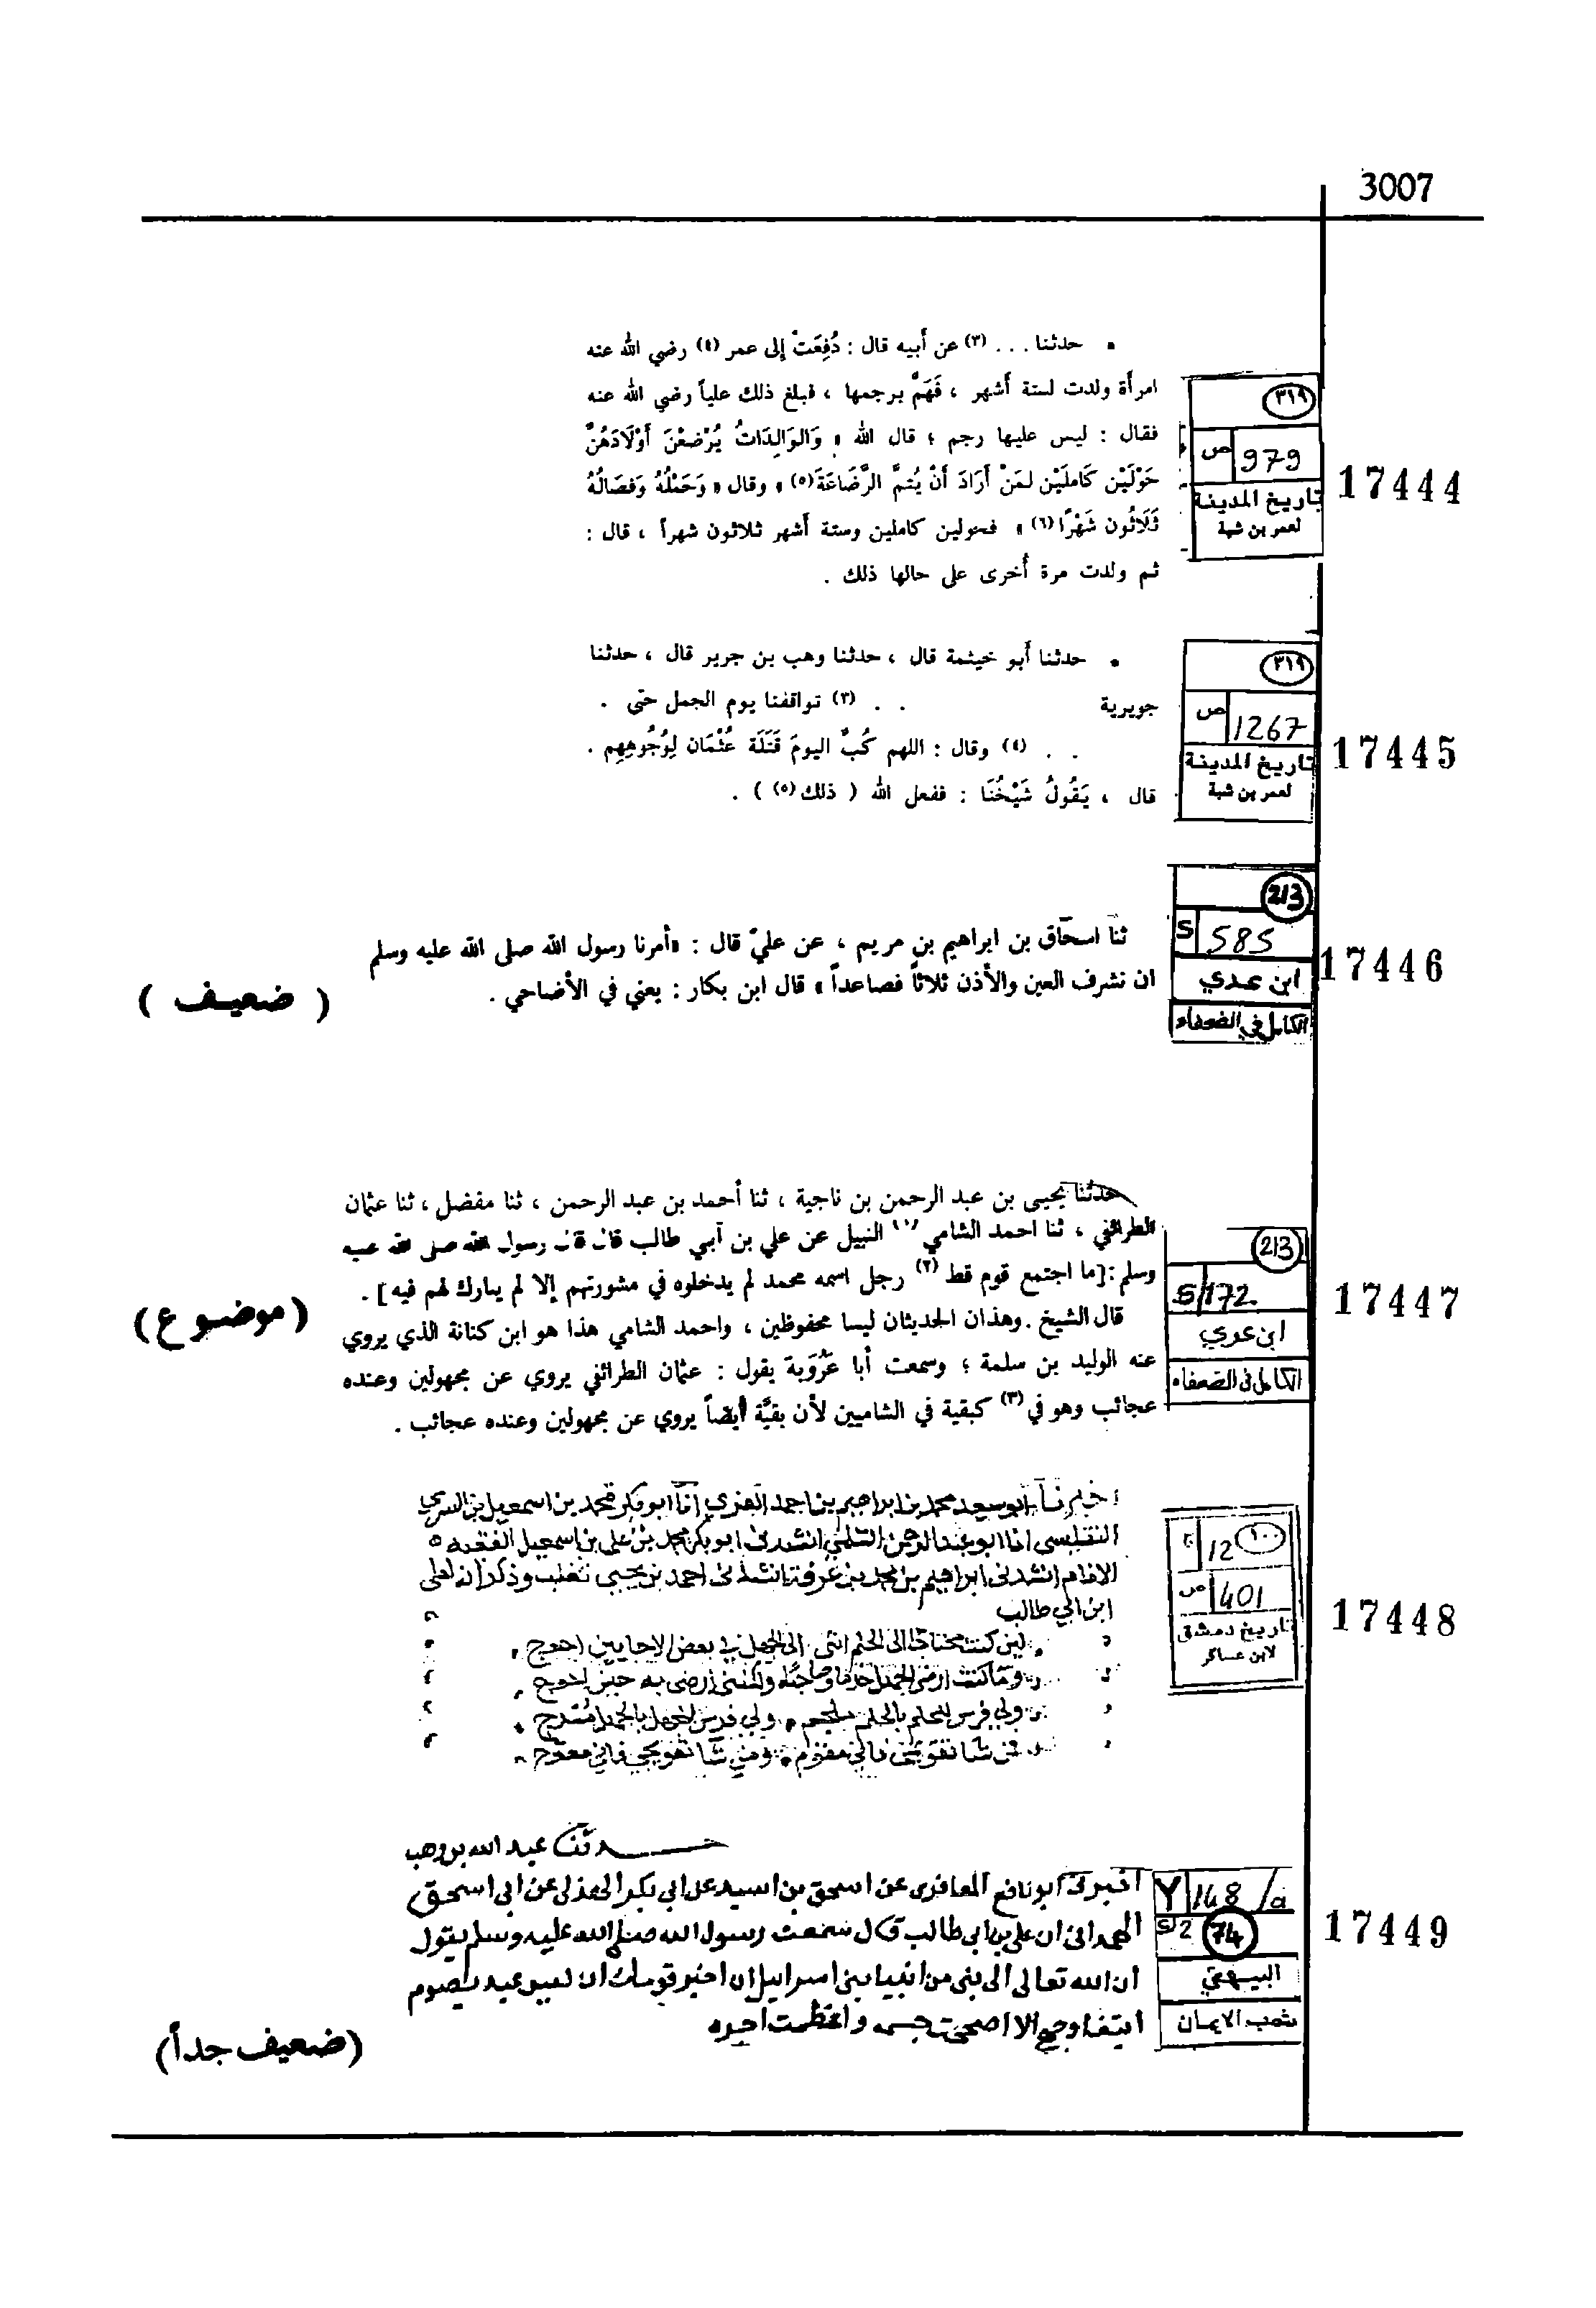 3007
• حدثنا . . . (٣) عن أبيه قال : دُفِعَتْ إلى عمر (٤) رضي الله عنه
امرأة ولدت لستة أشهر ، فَهَمَّ برجمها ، فبلغ ذلك علياً رضي الله عنه
فقال : ليس عليها رجم ؛ قال الله « وَالوَالِدَاتُ يُرْضعْنَ أَوْلَادَهُنَّ
حَوْلَيْن كَاملَيْن لمَنْ أَرَادَ أَنْ يُتمَّ الرَّضَاعَةَ(٥) » وقال « وَحَمْلُهُ وَفصَالُهُ
ثَلَاثُون شَهْرًا(٦) » فحولين كاملين وستة أشهر ثلاثون شهراً ، قال :
ثم ولدت مرة أخرى على حالها ذلك .
٣١٩
ص 979
تاريخ المدينة
لعمر بن شبة
17444
• حدثنا أبو خيثمة قال ، حدثنا وهب بن جرير قال ، حدثنا
جويرية . . (٣) تواقفنا يوم الجمل حتى .
. . (٤) وقال : اللهم كُبَّ اليومَ قَتَلَة عُثْمَان لِوُجُوهِهِم .
قال ، يَقُولُ شَيْخُنَا : ففعل الله ( ذلك(٥) ) .
٣١٩
ص 1267
تاريخ المدينة
لعمر بن شبة
17445
ثنا اسحاق بن ابراهيم بن مريم ، عن عليّ قال : «أمرنا رسول الله صلى الله عليه وسلم
ان نشرف العين والأذن ثلاثاً فصاعداً » قال ابن بكار : يعني في الأضاحي .
( ضعيف )
213
S 585
ابن عدي
الكامل في الضعفاء
17446
حدثنا يحيى بن عبد الرحمن بن ناجية ، ثنا أحمد بن عبد الرحمن ، ثنا مفضل ، ثنا عثمان
الطرائفي ، ثنا احمد الشامي (١) النبيل عن علي بن أبي طالب قال قال رسول الله صلى الله عليه
وسلم :[ما اجتمع قوم قط (٢) رجل اسمه محمد لم يدخلوه في مشورتهم إلا لم يبارك لهم فيه] .
قال الشيخ . وهذان الحديثان ليسا محفوظين ، واحمد الشامي هذا هو ابن كنانة الذي يروي
عنه الوليد بن سلمة ؛ وسمعت أبا عَرُوَبة يقول : عثمان الطرائفي يروي عن مجهولين وعنده
عجائب وهو في (٣) كبقية في الشاميين لأن بقيَّة أيضاً يروي عن مجهولين وعنده عجائب .
(موضوع)
213
S 172
ابن عدي
الكامل في الضعفاء
17447
اخبرنا ابو سعيد محمد بن ابراهيم بن احمد انا ابو بكر محمد بن اسمعيل بن السري
التفليسي انا ابو عبد الرحمن السلمي انشدني ابو بكر محمد بن علي بن اسمعيل الفقيه
الامام انشدني ابراهيم بن محمد بن عرفة انشدني احمد بن يحيى ثعلب وذكر انه لعلي
ابن ابي طالب
لئن كنت محتاجا الى الحلم انني الى الجهل في بعض الاحايين احوج
وما كنت ارضى الجهل خدنا وصاحبا ولكنني ارضى به حين احوج
ولي فرس للحلم بالحلم ملجم ولي فرس للجهل بالجهل مسرج
فمن شا تقويمي فاني مقوم ومن شا تعويجي فاني معوج
١٠٠
ج 12
ص 401
تاريخ دمشق
لابن عساكر
17448
حدثنا عبد الله بن وهب
اخبرني ابو نافع المعافري عن اسحق بن اسيد عن ابي بكر الهذلي عن ابي اسحق
الهمداني ان علي بن ابي طالب قال سمعت رسول الله صلى الله عليه وسلم يقول
ان الله تعالى الى نبي من انبيا بني اسرائيل ان اخبر قومك ان ليس عبد يصوم
ابتغا وجهي الا اصححت جسمه واعظمت اجره
(ضعيف جداً)
Y 148/a
S 2 74
البيهقي
شعب الايمان
17449